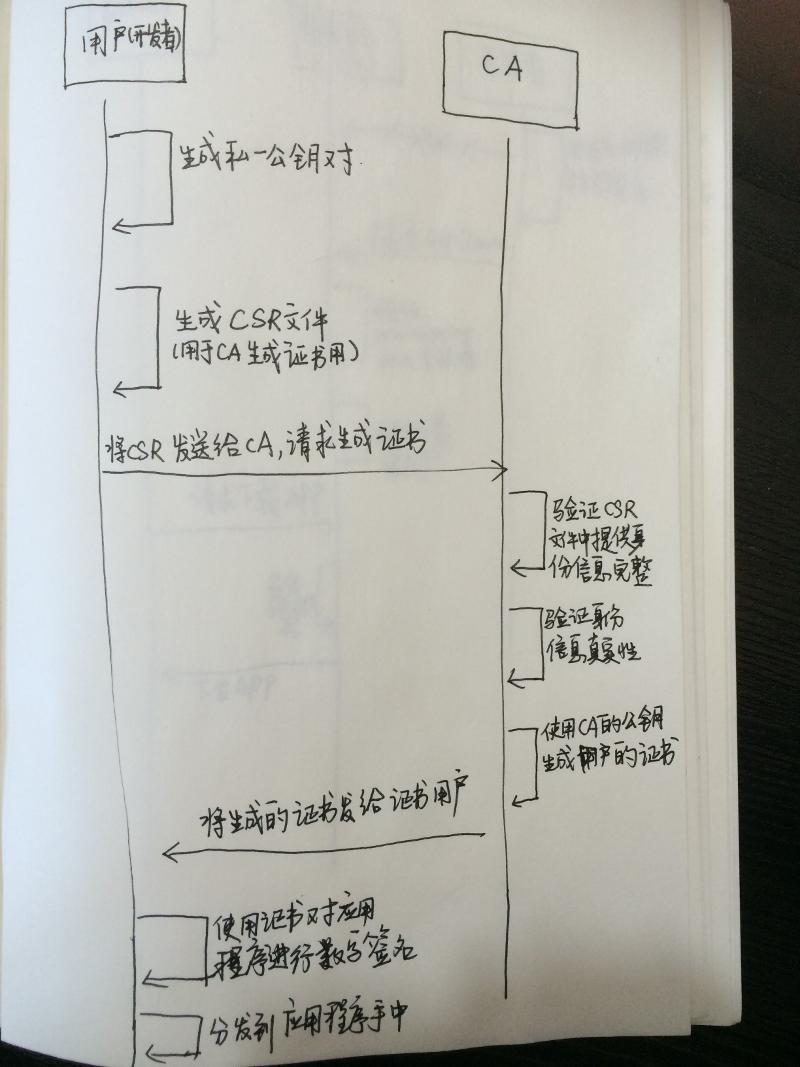 用户(开发者)
CA
生成私一公钥对.
生成CSR文件
(用于CA生成证书用)
将CSR发送给CA,请求生成证书
验证CSR
文件中提供身
份信息完整
验证身份
信息真实性
使用CA的公钥
生成用户的证书
将生成的证书发给证书用户
使用证书对应用
程序进行数字签名
分发到应用程序手中